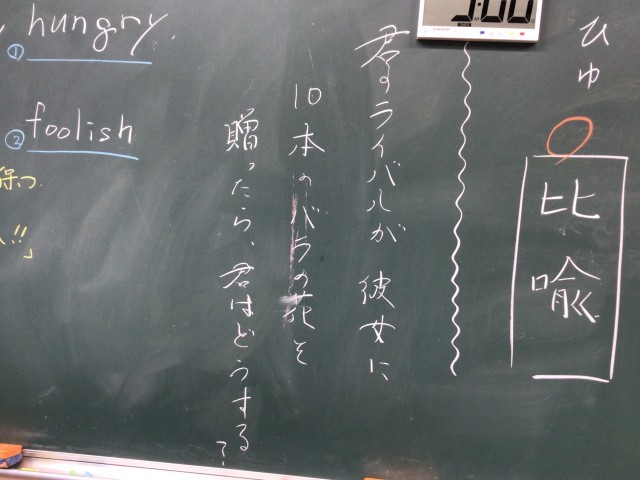 ひゆ
比喩
君のライバルが彼女に
10本のバラの花を
贈ったら、君はどうする?
① hungry
② foolish
保つ
!!」